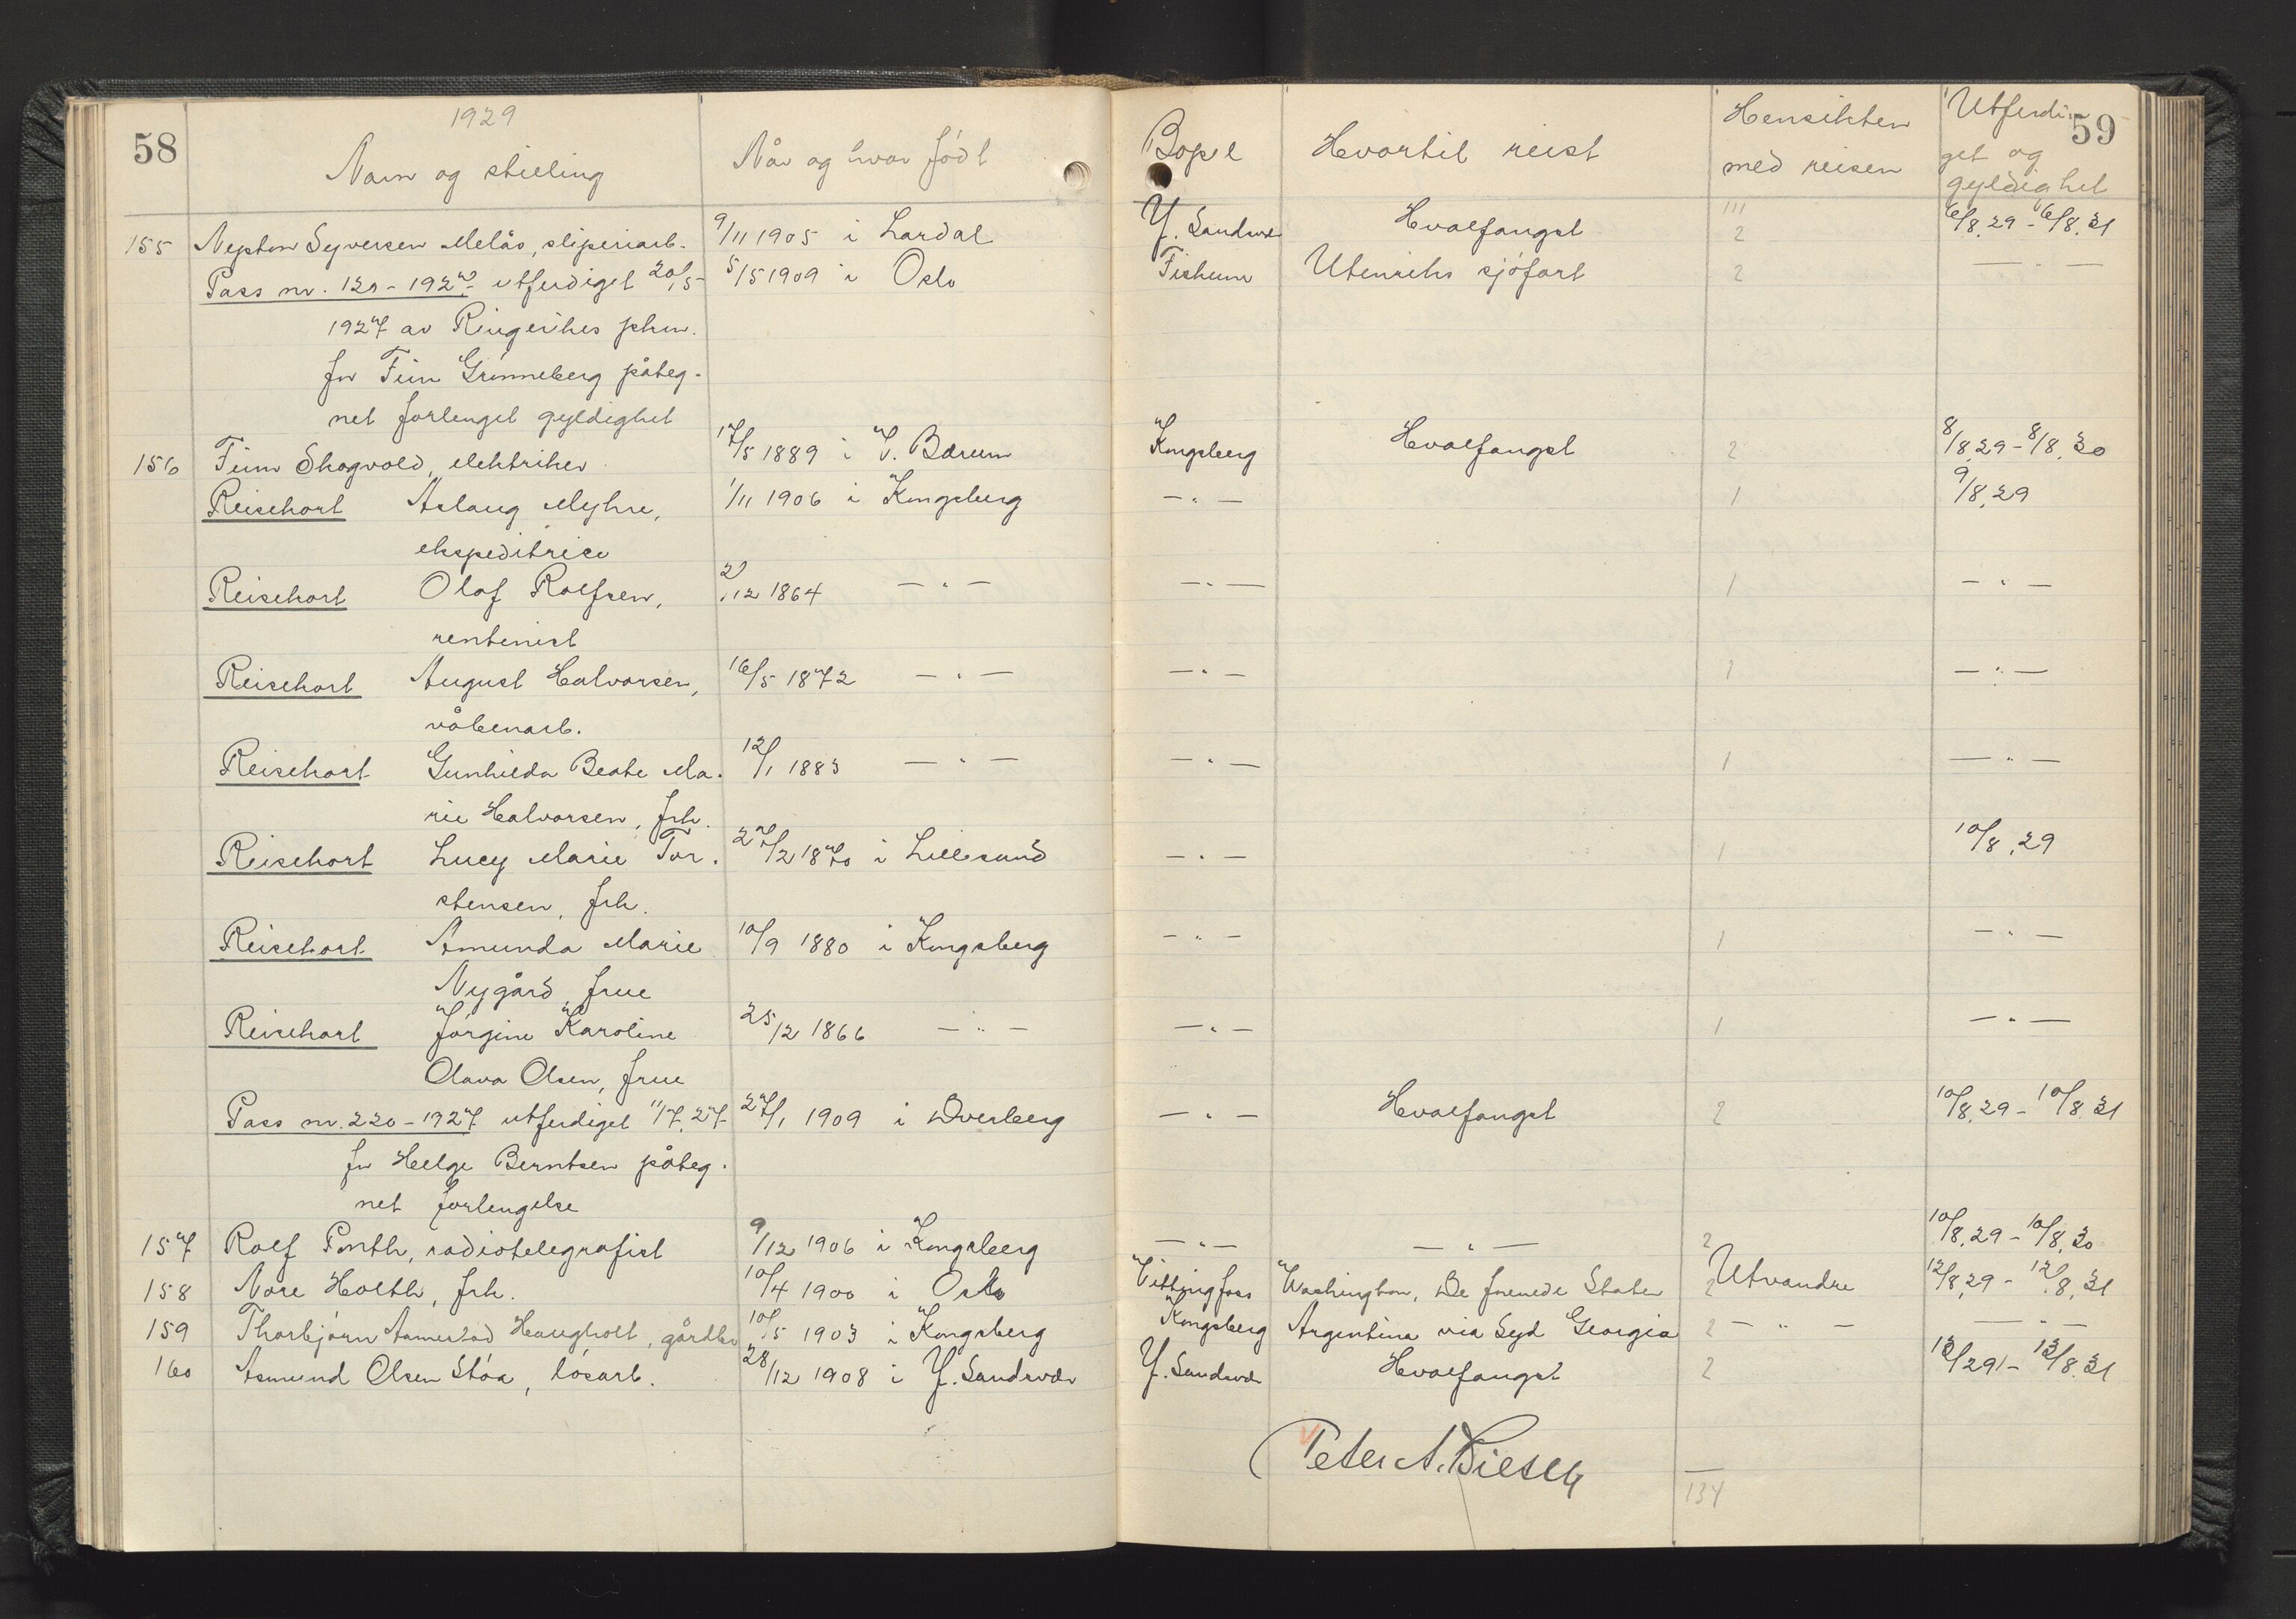 58
1929
Navn og stilling
Når og hvor født
Bopel
Hvortil reist
Hensikten
med reisen
Utferdi-
get og
gyldighet
59
155 Nepton Syversen Melås, sliperiarb. 9/11 1905 i Lardal Y. Sandsv. Hvalfangst 111 2 6/8.29 - 6/8.31
Pass nr. 120 - 1927 utferdiget 20/5- 5/5 1909 i Oslo Fiskum Utenriks sjøfart 2 — " —
1927 av Ringerikes pkm.
for Finn Grønneberg påteg-
net forlenget gyldighet
156 Finn Skogvold, elektriker 17/5 1889 i V. Bærum Kongsberg Hvalfangst 2 8/8.29 - 8/8.30
Reisekort Aslaug Myhre, 1/11 1906 i Kongsberg — " — 1 9/8.29
ekspeditrise
Reisekort Olaf Rolfsen, 2/12 1864 — " — — " — 1 — " —
rentenist
Reisekort August Halvorsen, 16/5 1872 — " — — " — 1 — " —
våbenarb.
Reisekort Gunhilda Beate Ma- 12/1 1883 — " — — " — 1 — " —
rie Halvorsen, frk.
Reisekort Lucy Marie Tor- 27/2 1870 i Lillesand — " — 1 10/8.29
stensen, frk.
Reisekort Amunda Marie 10/9 1880 i Kongsberg — " — 1 — " —
Nygård, frue
Reisekort Jørgine Karoline 25/12 1866 — " — — " — 1 — " —
Olava Olsen, frue
Pass nr. 220 - 1927 utferdiget 11/7.27 27/1 1909 i Dverberg — " — Hvalfangst 2 10/8.29 - 10/8.31
for Helge Berntsen påteg-
net forlengelse
157 Rolf Ponth, radiotelegrafist 9/12 1906 i Kongsberg — " — — " — 2 10/8.29 - 10/8.30
158 Nore Holth, frk. 10/4 1900 i Oslo Vittingfoss Washington, De forenede Stater 2 Utvandre 12/8.29 - 12/8.31
159 Thorbjørn Aamestad Haugholt, gårdbr 10/5 1903 i Kongsberg Kongsberg Argentina via Syd Georgia 2 — " — — " —
160 Asmund Olsen Støa, løsarb. 28/12 1908 i Y. Sandsvær Y. Sandsvær Hvalfangst 2 13/29 - 13/8.31
Peter A.
134